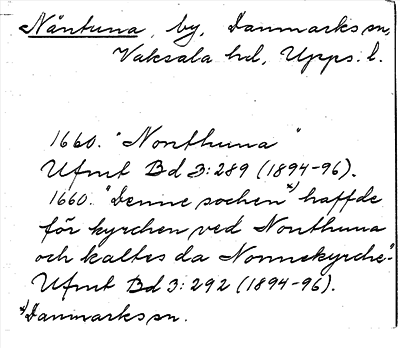 Nåntuna, by, Danmarks sn,
Vaksala hd, Upps. l.
1660. "Nonthuna"
Ufmt Bd 3:289 (1894-96).
1660. "Denne sochen*) haffde
för kyrchen ved Nonthuna
och kaltes da Nonnekyrche".
Ufmt Bd 3:292 (1894-96).
*) Danmarks sn.